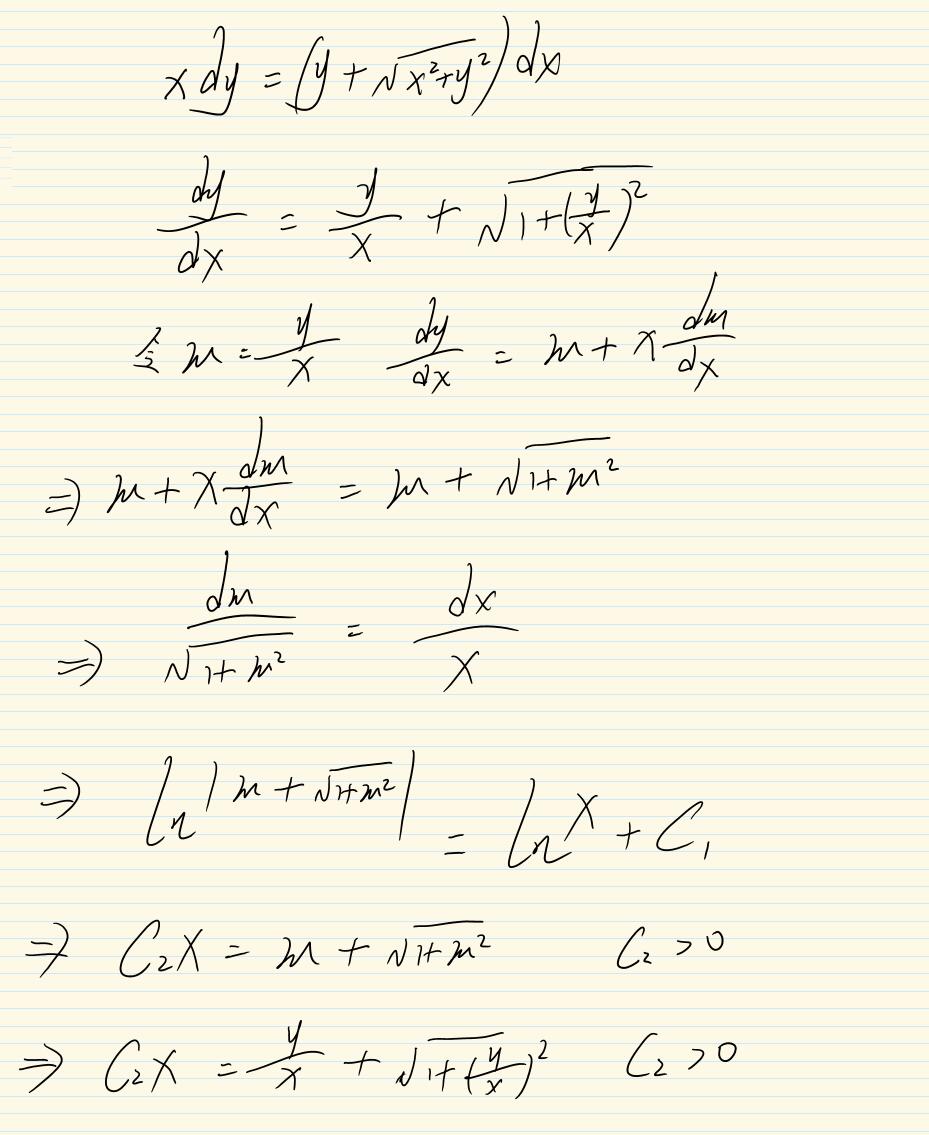 x dy = (y + √(x²+y²)) dx
dy/dx = y/x + √(1+(y/x)²)
令 m = y/x   dy/dx = m + x dm/dx
⇒ m + x dm/dx = m + √(1+m²)
⇒ dm/√(1+m²) = dx/x
⇒ ln|m + √(1+m²)| = ln x + C₁
⇒ C₂x = m + √(1+m²)   C₂ > 0
⇒ C₂x = y/x + √(1+(y/x)²)   C₂ > 0